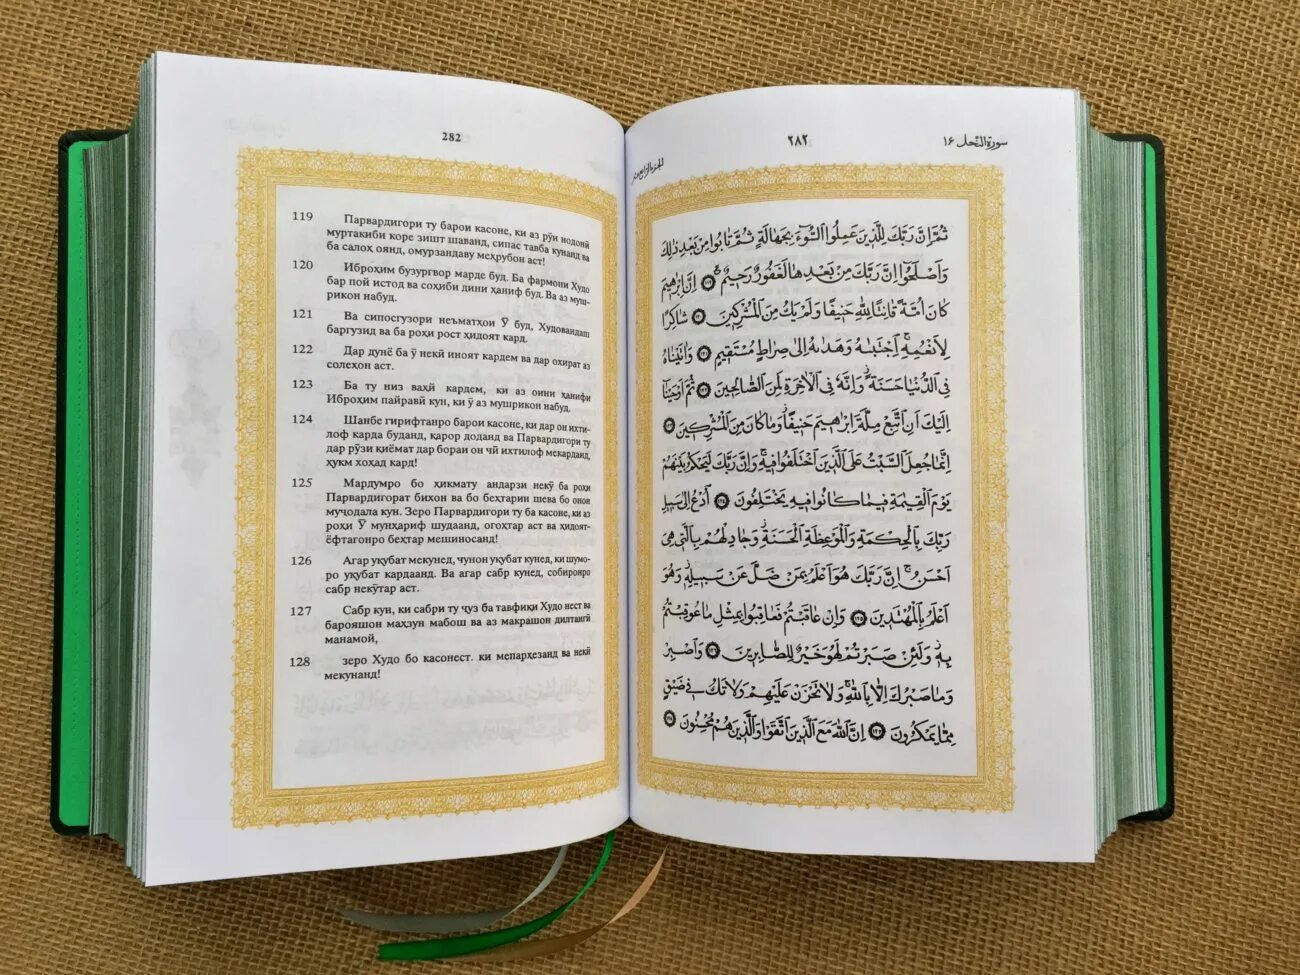 282
119 Парвардигори ту барои касоне, ки аз рӯи нодонӣ
муртакиби коре зишт шаванд, сипас тавба кунанд ва
ба салоҳ оянд, омурзандаву меҳрубон аст!
120 Иброҳим бузургвор марде буд. Ба фармони Худо
бар пой истод ва соҳиби дини ҳаниф буд. Ва аз муш-
рикон набуд.
121 Ва сипосгузори неъматҳои Ӯ буд, Худовандаш
баргузид ва ба роҳи рост ҳидоят кард.
122 Дар дунё ба ӯ некӣ иноят кардем ва дар охират аз
солеҳон аст.
123 Ба ту низ ваҳй кардем, ки аз оини ҳанифи
Иброҳим пайравӣ кун, ки ӯ аз мушрикон набуд.
124 Шанбе гирифтанро барои касоне, ки дар он ихти-
лоф карда буданд, қарор доданд ва Парвардигори ту
дар рӯзи қиёмат дар бораи он чӣ ихтилоф мекарданд,
ҳукм хоҳад кард!
125 Мардумро бо ҳикмату андарзи некӯ ба роҳи
Парвардигорат бихон ва бо беҳтарин шева бо онон
муҷодала кун. Зеро Парвардигори ту ба касоне, ки аз
роҳи Ӯ мунҳариф шудаанд, огоҳтар аст ва ҳидоят-
ёфтагонро беҳтар мешиносанд!
126 Агар уқубат мекунед, чунон уқубат кунед, ки шумо-
ро уқубат кардаанд. Ва агар сабр кунед, собиронро
сабр некӯтар аст.
127 Сабр кун, ки сабри ту ҷуз ба тавфиқи Худо нест ва
барояшон маҳзун мабош ва аз макрашон дилтангӣ
манамой,
128 зеро Худо бо касонест. ки мепарҳезанд ва некӣ
мекунанд!
سورة النحل ١٦
٢٨٢
الجزء الرابع عشر
ثُمَّ إِنَّ رَبَّكَ لِلَّذِينَ عَمِلُوا السُّوٓءَ بِجَهَالَةٍ ثُمَّ تَابُوا مِنْ بَعْدِ ذٰلِكَ
وَاَصْلَحُوٓا اِنَّ رَبَّكَ مِنْ بَعْدِهَا لَغَفُورٌ رَحِيمٌ ۝١١٩ اِنَّ اِبْرٰهِيمَ
كَانَ اُمَّةً قَانِتًا لِلّٰهِ حَنِيفًا وَلَمْ يَكُ مِنَ الْمُشْرِكِينَ ۝١٢٠ شَاكِرًا
لِاَنْعُمِهِ ۚ اِجْتَبٰيهُ وَهَدٰيهُ اِلٰى صِرَاطٍ مُسْتَقِيمٍ ۝١٢١ وَاٰتَيْنَاهُ
فِي الدُّنْيَا حَسَنَةً ۖ وَاِنَّهُ فِي الْاٰخِرَةِ لَمِنَ الصَّالِحِينَ ۝١٢٢ ثُمَّ اَوْحَيْنَا
اِلَيْكَ اَنِ اتَّبِعْ مِلَّةَ اِبْرٰهِيمَ حَنِيفًا ۖ وَمَا كَانَ مِنَ الْمُشْرِكِينَ ۝١٢٣
اِنَّمَا جُعِلَ السَّبْتُ عَلَى الَّذِينَ اخْتَلَفُوا فِيهِ ۚ وَاِنَّ رَبَّكَ لَيَحْكُمُ بَيْنَهُمْ
يَوْمَ الْقِيٰمَةِ فِيمَا كَانُوا فِيهِ يَخْتَلِفُونَ ۝١٢٤ اُدْعُ اِلٰى سَبِيلِ
رَبِّكَ بِالْحِكْمَةِ وَالْمَوْعِظَةِ الْحَسَنَةِ ۖ وَجَادِلْهُمْ بِالَّتِي هِيَ
اَحْسَنُ ۚ اِنَّ رَبَّكَ هُوَ اَعْلَمُ بِمَنْ ضَلَّ عَنْ سَبِيلِهِ ۖ وَهُوَ
اَعْلَمُ بِالْمُهْتَدِينَ ۝١٢٥ وَاِنْ عَاقَبْتُمْ فَعَاقِبُوا بِمِثْلِ مَا عُوقِبْتُمْ
بِهِ ۖ وَلَئِنْ صَبَرْتُمْ لَهُوَ خَيْرٌ لِلصَّابِرِينَ ۝١٢٦ وَاصْبِرْ
وَمَا صَبْرُكَ اِلَّا بِاللّٰهِ ۚ وَلَا تَحْزَنْ عَلَيْهِمْ وَلَا تَكُ فِي ضَيْقٍ
مِمَّا يَمْكُرُونَ ۝١٢٧ اِنَّ اللّٰهَ مَعَ الَّذِينَ اتَّقَوْا وَالَّذِينَ هُمْ مُحْسِنُونَ ۝١٢٨